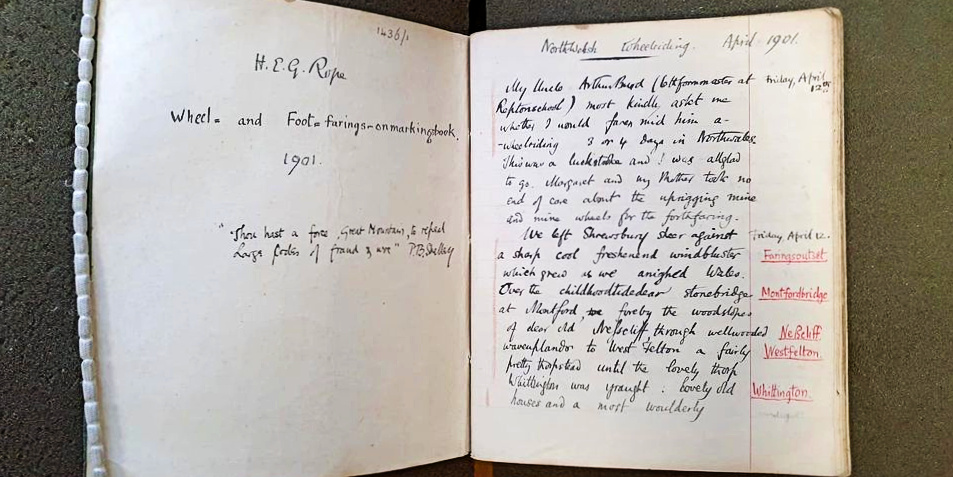 1436/1
H.E.G. Rope
Wheel= and Foot=farings-onmarkingsbook.
1901.
"Thou hast a force, Great Mountain, to repeal
Large codes of fraud & woe" P.B. Shelley
Northwelsh Wheelriding. April 1901.
My Uncle Arthur Burd (6thformmaster at
Friday, April
12th
Reptonschool) most kindly askt me
whether I would faren mid him a-
-wheelriding 3 or 4 days in Northwales.
This was a luckstroke and I was allglad
to go. Margaret and my Mother took no
end of care about the uprigging mine
and mine wheels for the forthfaring.
We left Shrewsbury sheer against
Friday April 12.
a sharp cool freshened windbluster
Faringsoutset
which grew as we anighed Wales.
Over the childhoodtidedear stonebridge
Montfordbridge
at Montford, foreby the woodslopes
of dear old Neßcliff, through wellwooded
Neßcliff
wavenplandor to West Felton a fairly
Westfelton
pretty thorpstead until the lovely thorp
Whittington was yraught: lovely old
Whittington
houses and a most woulderly